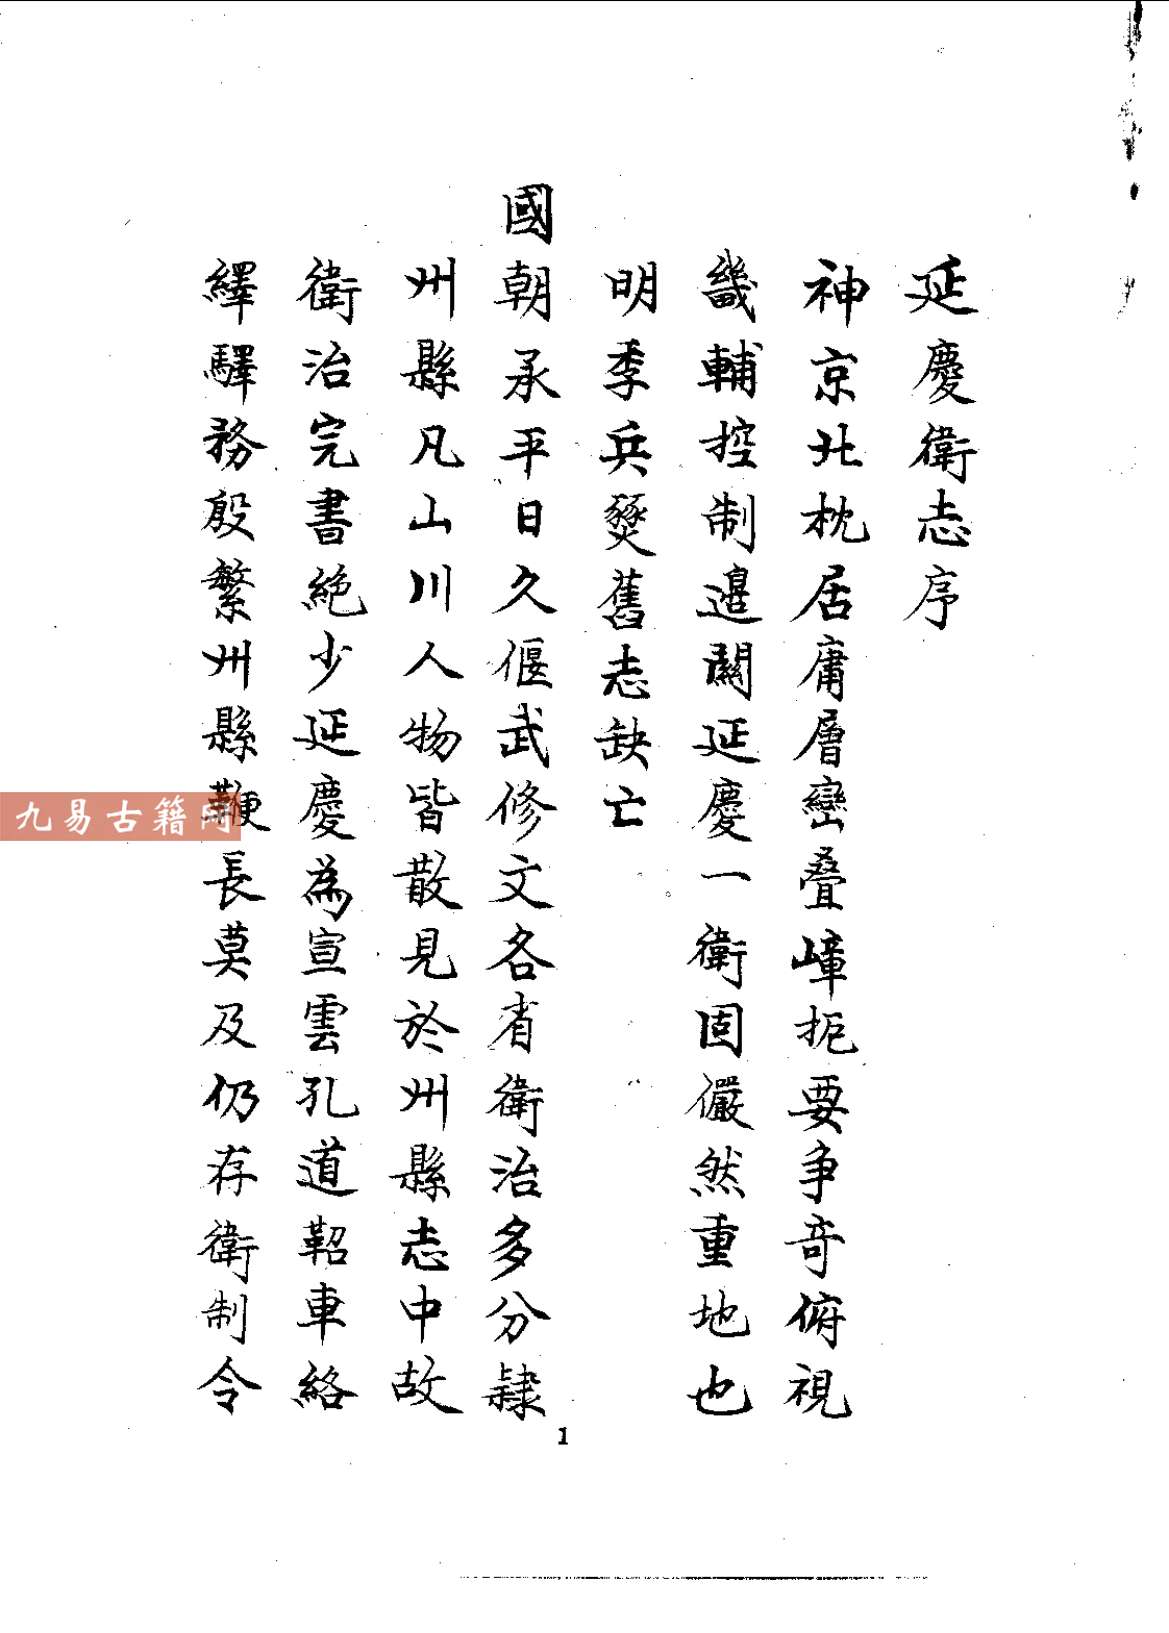 延慶衛志序
神京北枕居庸層巒疊嶂扼要爭奇俯視
畿輔控制邊關延慶一衛固儼然重地也
明季兵燹舊志缺亡
國朝承平日久偃武修文各省衛治多分隷
州縣凡山川人物皆散見於州縣志中故
衛治完書絶少延慶為宣雲孔道軺車絡
繹驛務殷繁州縣鞭長莫及仍存衛制令
1
九易古籍网